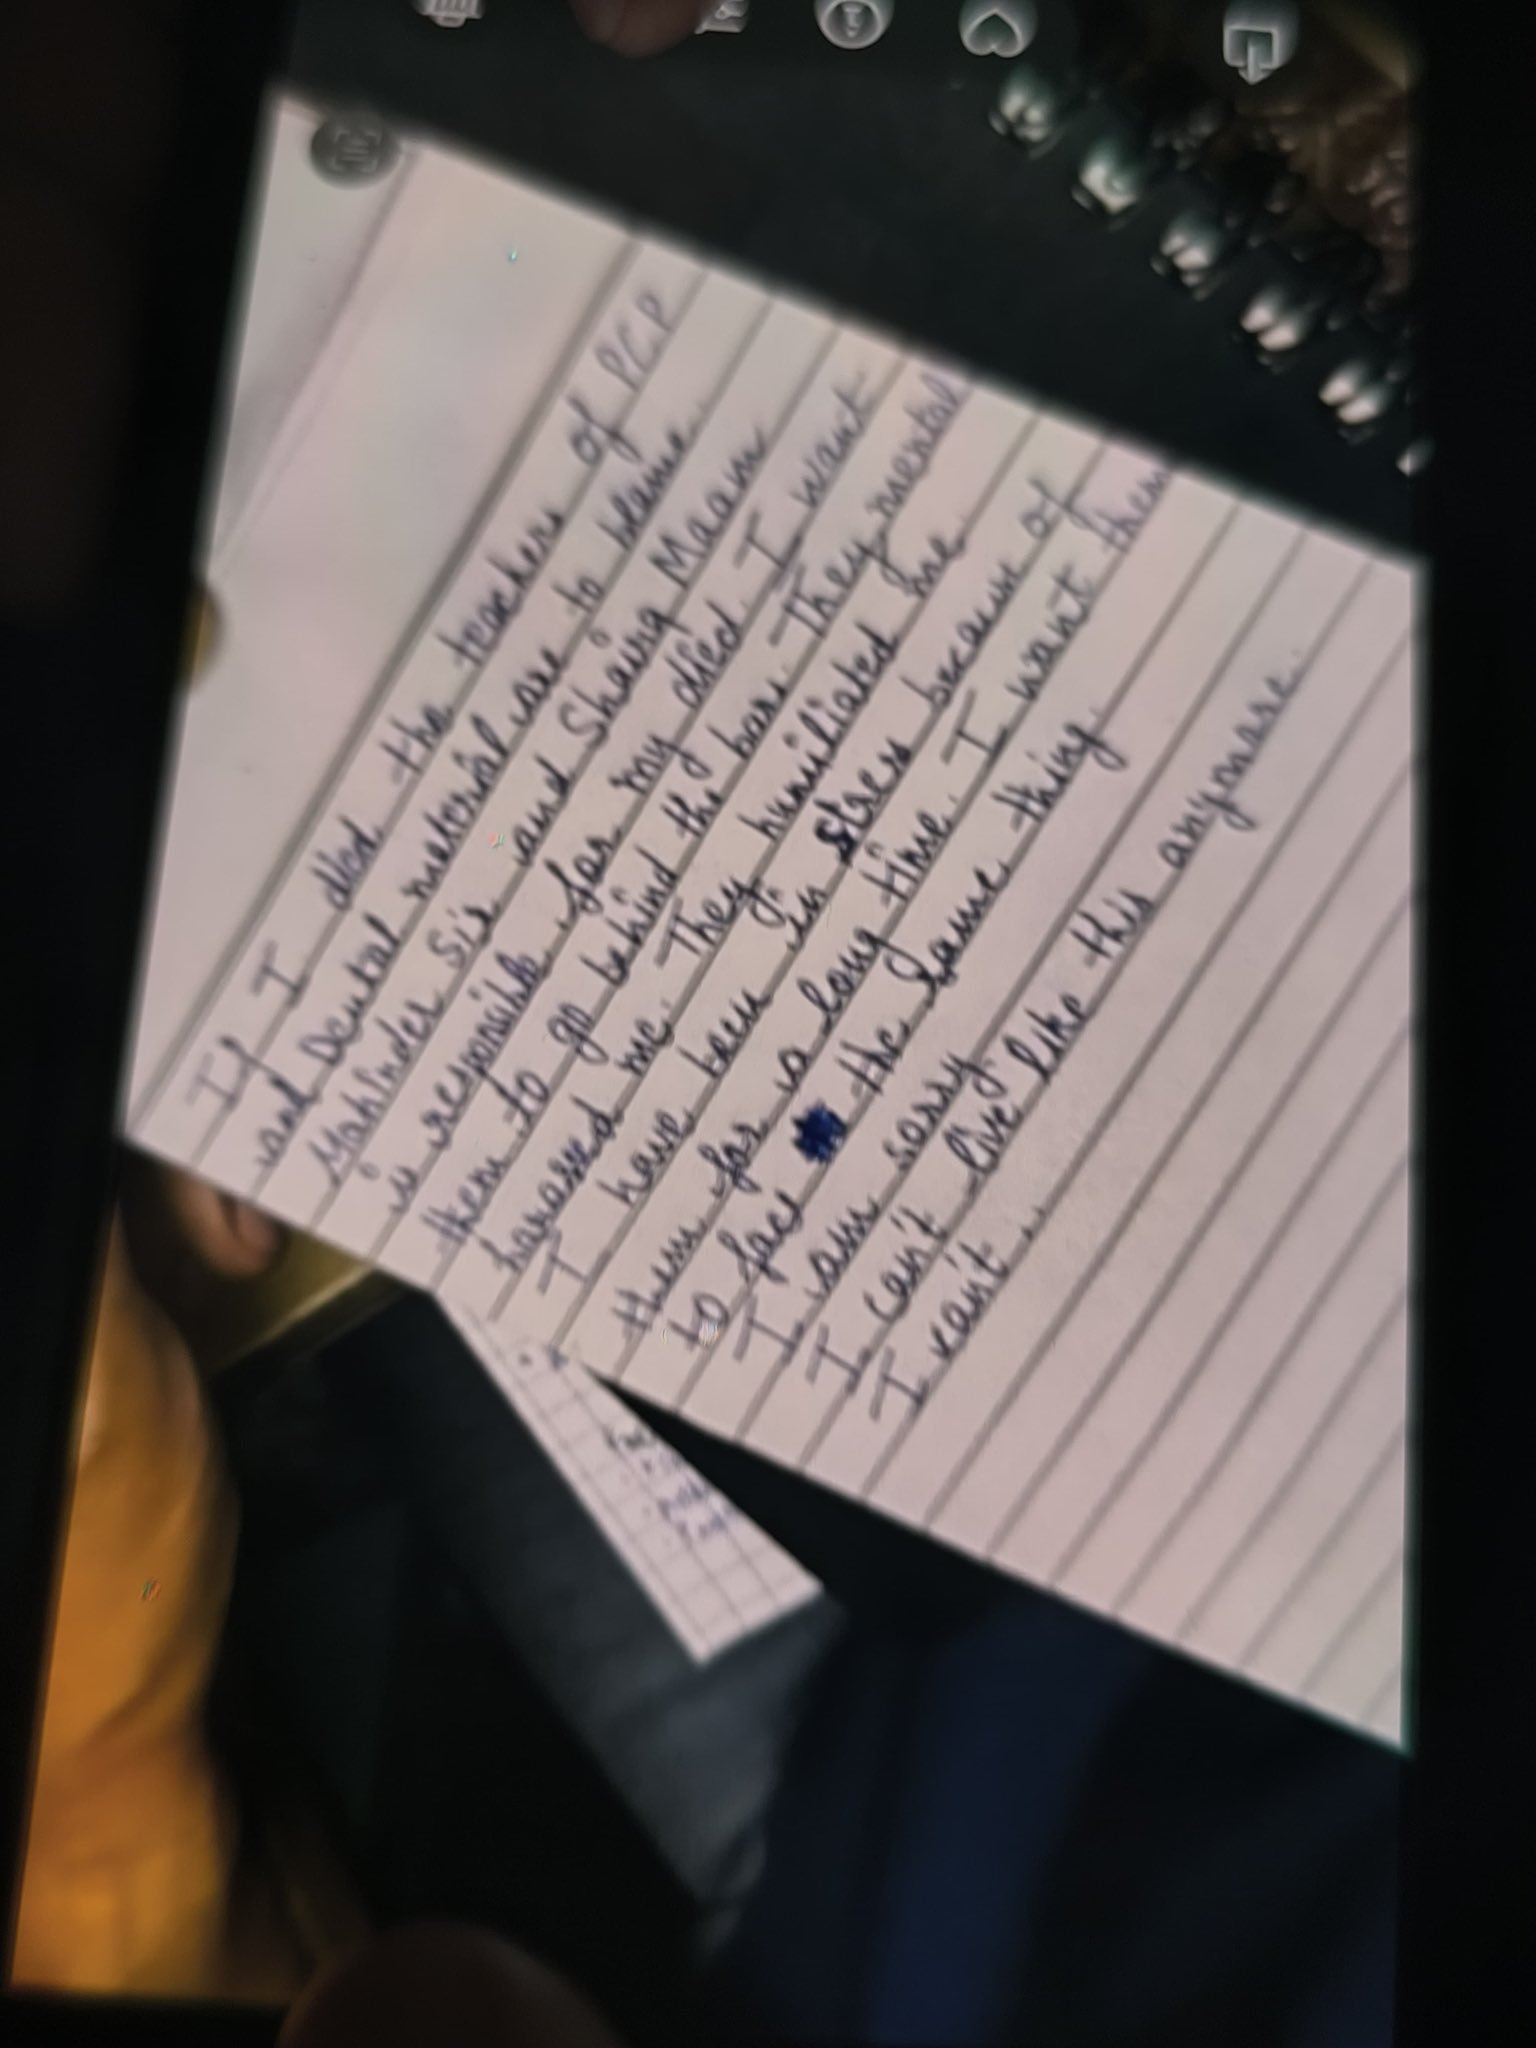 If I died the teachers of PCP
and Dental material are to blame.
Mahinder sir and Shairg Maam
is responsible for my died. I want
them to go behind the bars. They mental
harassed me. They humiliated me
I have been in stress because of
them for a long time. I want them
to face the same thing.
I am sorry
I can't live like this anymore.
I can't ..